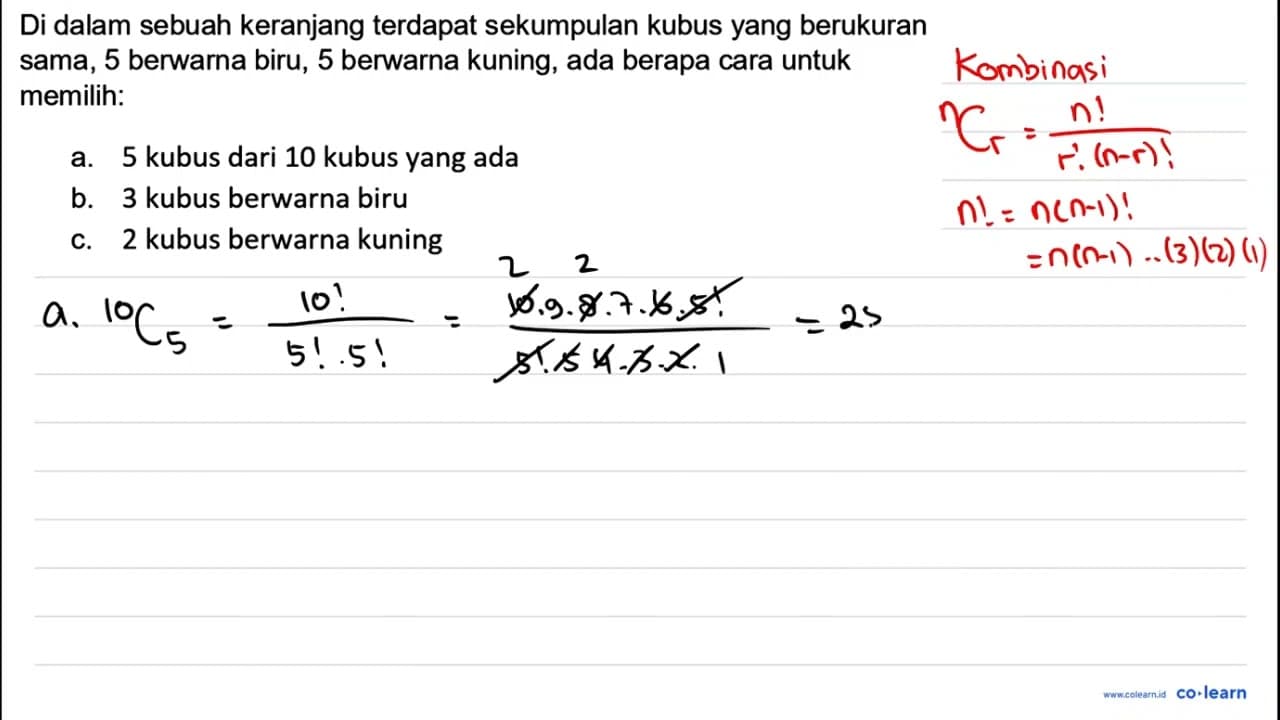 Di dalam sebuah keranjang terdapat sekumpulan kubus yang berukuran
sama, 5 berwarna biru, 5 berwarna kuning, ada berapa cara untuk
memilih:
a. 5 kubus dari 10 kubus yang ada
b. 3 kubus berwarna biru
c. 2 kubus berwarna kuning
Kombinasi
nCr = n! / r!.(n-r)!
n! = n(n-1)!
= n(n-1)..(3)(2)(1)
2 2
a. 10C5 = 10! / 5!.5! = 10.9.8.7.6.5! / 5!.5 4.3.2.1 = 25
www.colearn.id co·learn